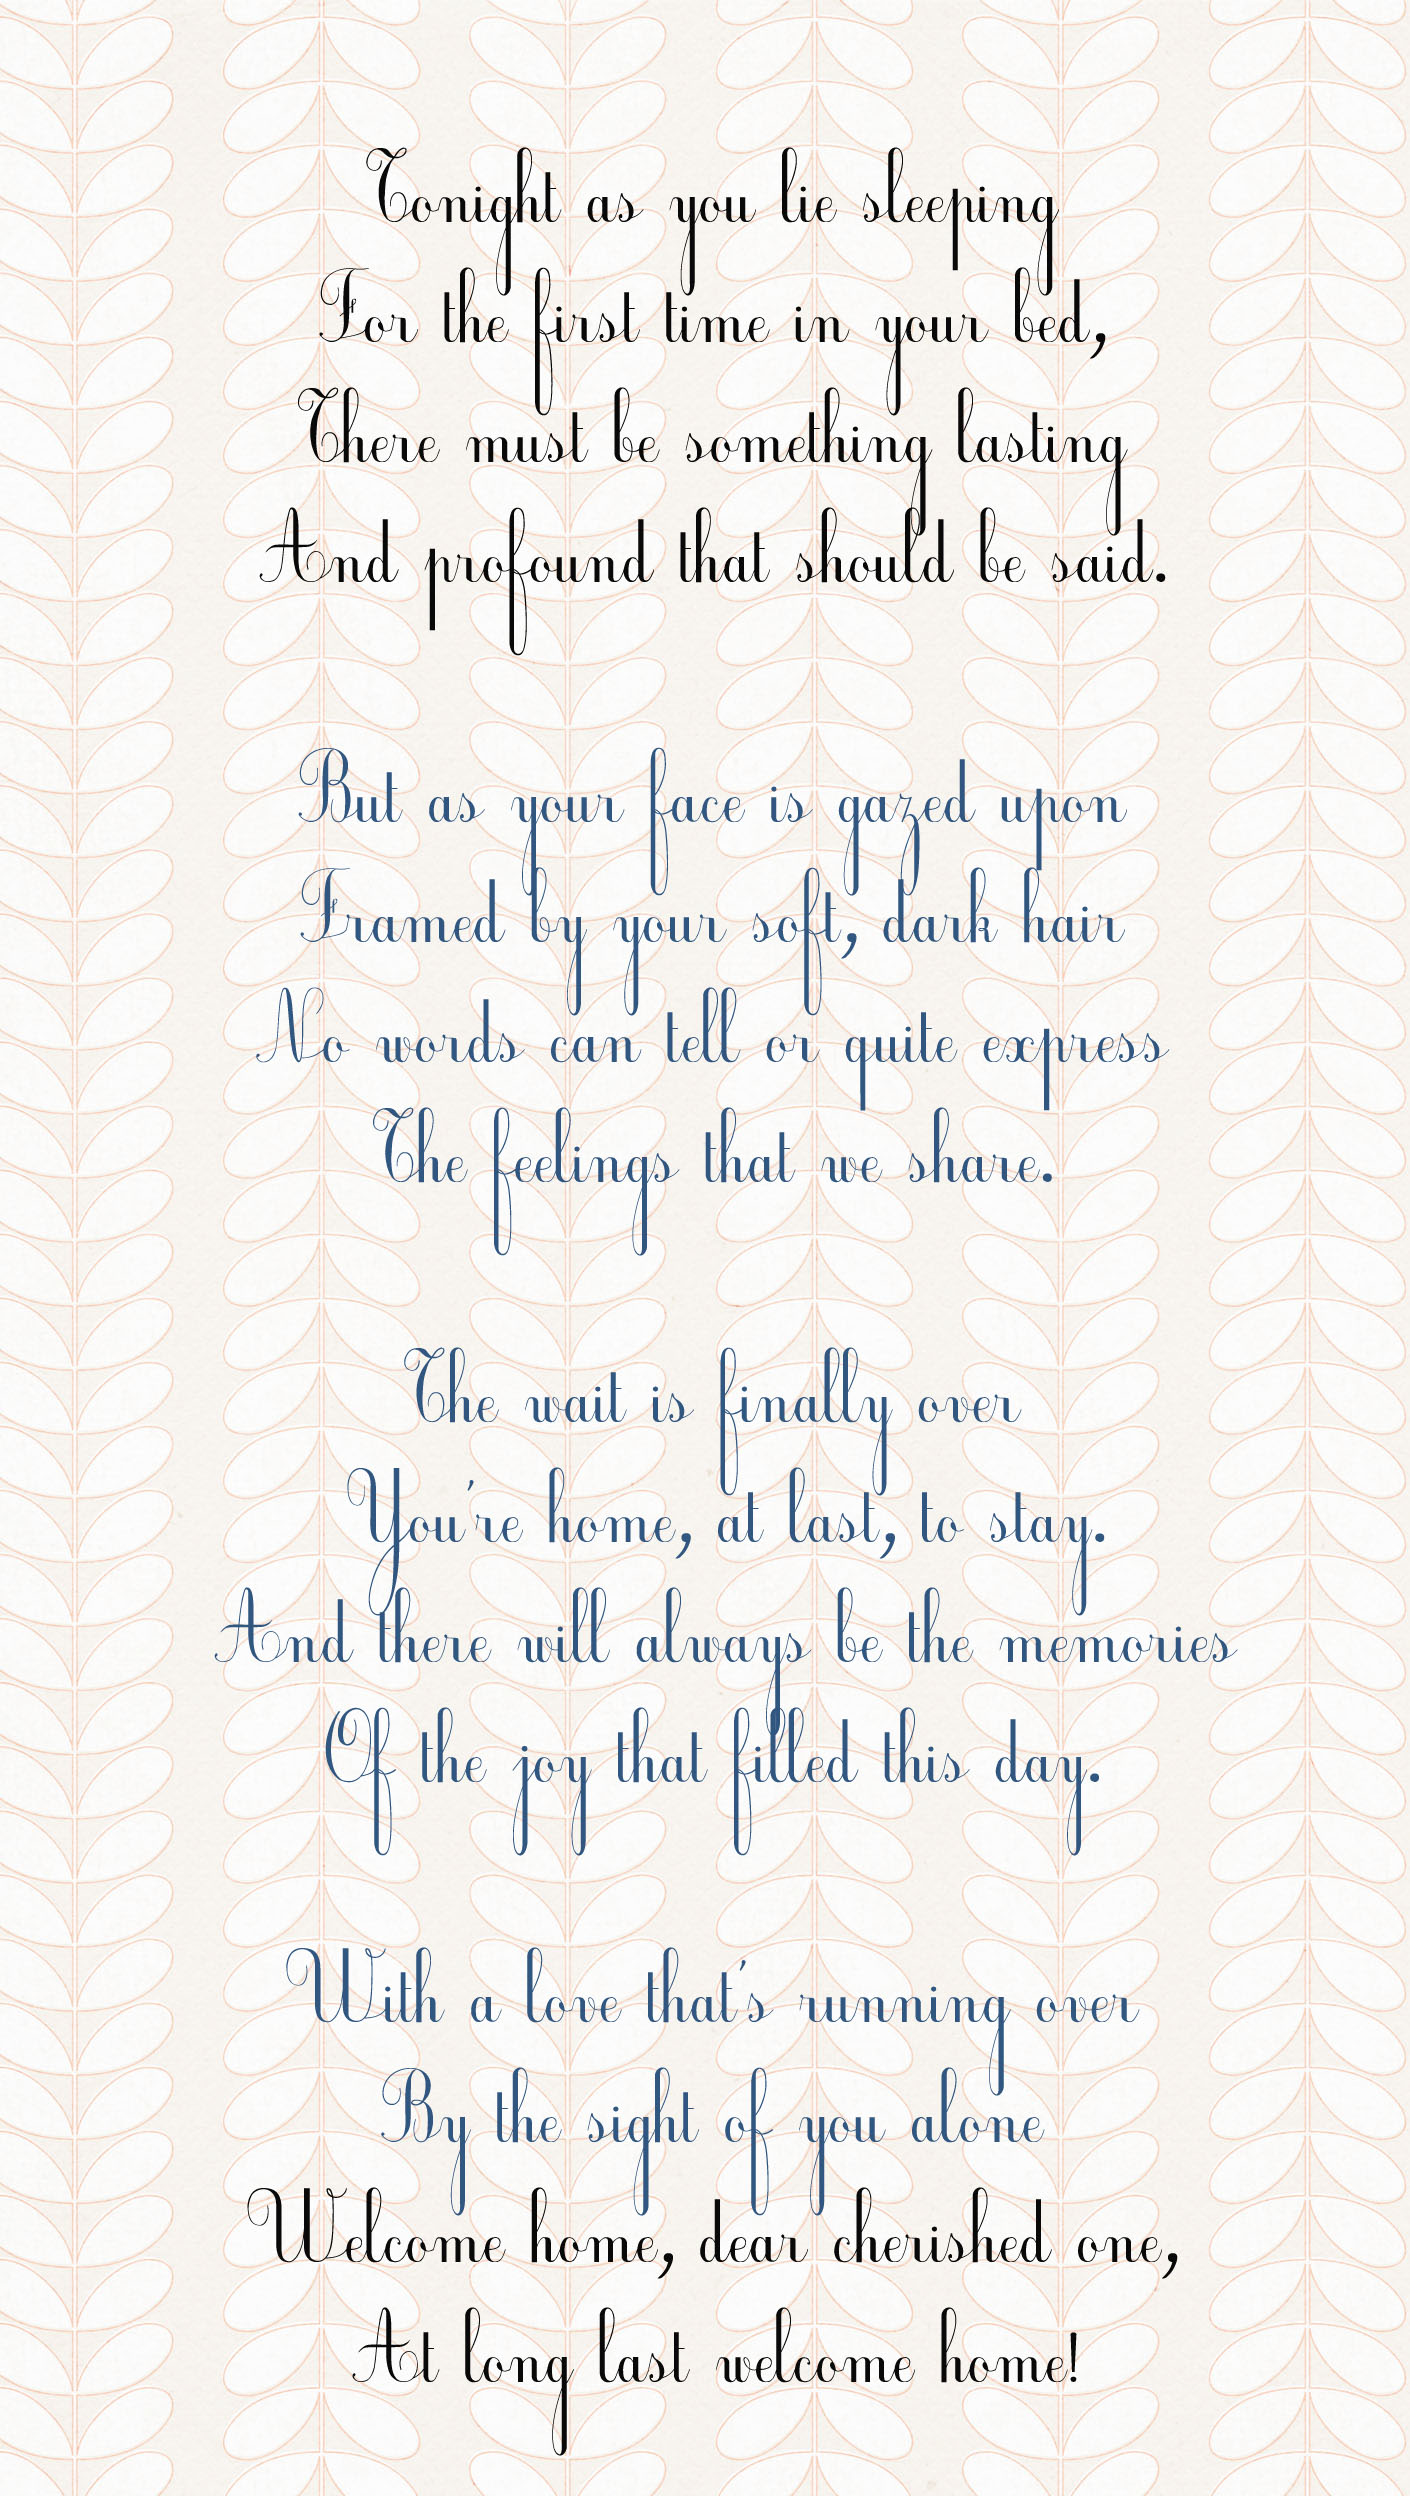 Tonight as you lie sleeping
For the first time in your bed,
There must be something lasting
And profound that should be said.
But as your face is gazed upon
Framed by your soft, dark hair
No words can tell or quite express
The feelings that we share.
The wait is finally over
You're home, at last, to stay.
And there will always be the memories
Of the joy that filled this day.
With a love that's running over
By the sight of you alone
Welcome home, dear cherished one,
At long last welcome home!